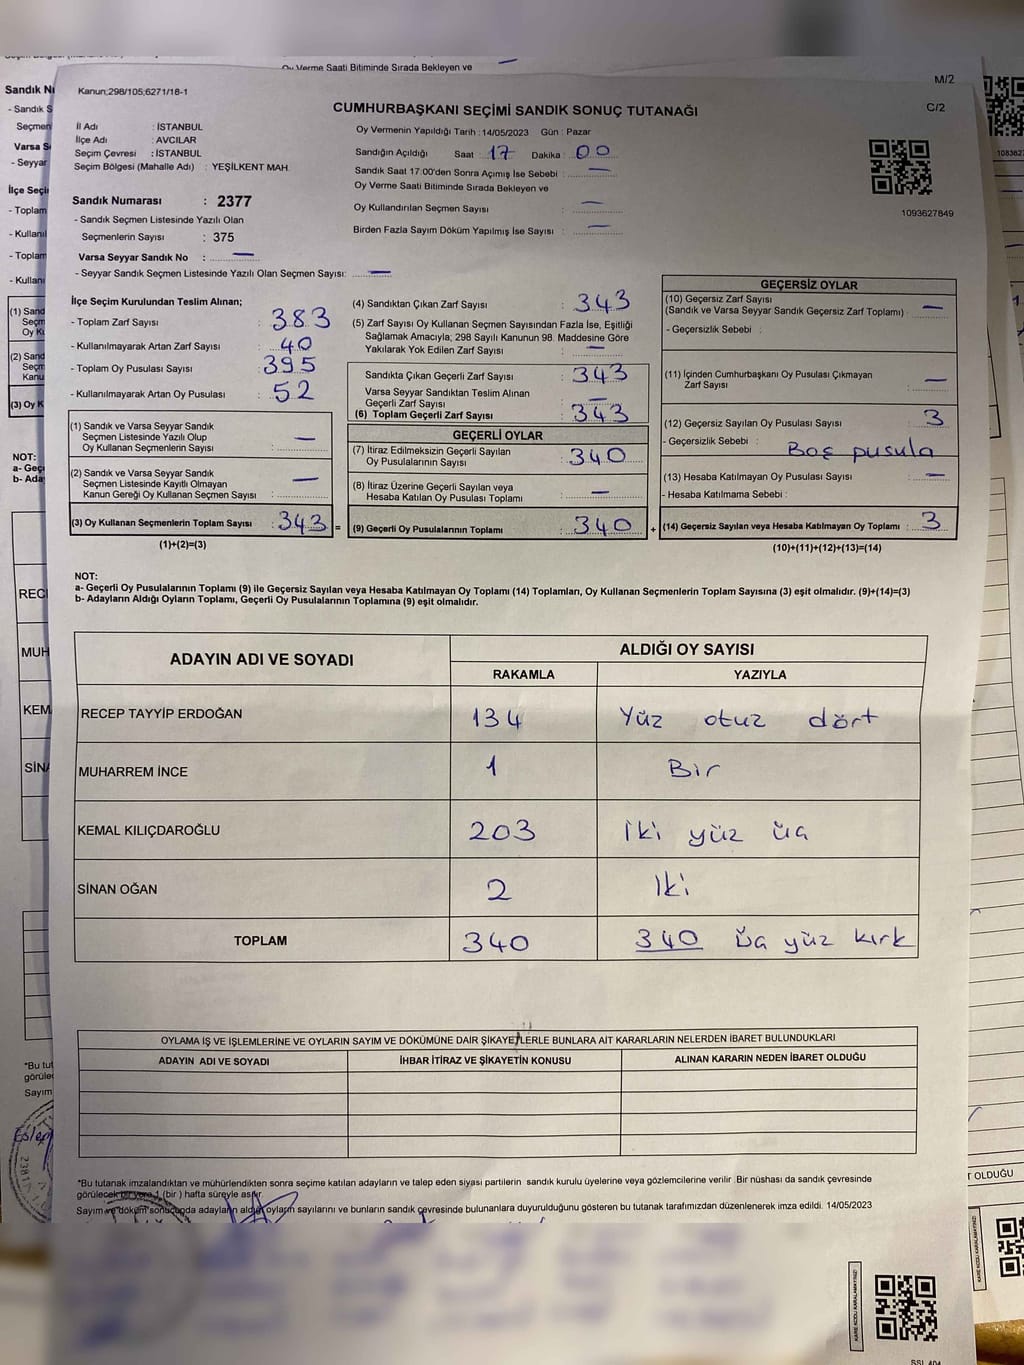 Oy Verme Saati Bitiminde Sırada Bekleyen ve
M/2
Kanun;298/105;6271/18-1
CUMHURBAŞKANI SEÇİMİ SANDIK SONUÇ TUTANAĞI
C/2
İl Adı : İSTANBUL
İlçe Adı : AVCILAR
Seçim Çevresi : İSTANBUL
Seçim Bölgesi (Mahalle Adı) : YEŞİLKENT MAH.
Oy Vermenin Yapıldığı Tarih : 14/05/2023 Gün : Pazar
Sandığın Açıldığı Saat : 17 Dakika : 00
Sandık Saat 17:00'den Sonra Açımış İse Sebebi : —
Oy Verme Saati Bitiminde Sırada Bekleyen ve
Oy Kullandırılan Seçmen Sayısı : —
Birden Fazla Sayım Döküm Yapılmış İse Sayısı : —
1093627849
Sandık Numarası : 2377
- Sandık Seçmen Listesinde Yazılı Olan
Seçmenlerin Sayısı : 375
Varsa Seyyar Sandık No : —
- Seyyar Sandık Seçmen Listesinde Yazılı Olan Seçmen Sayısı: —
İlçe Seçim Kurulundan Teslim Alınan;
- Toplam Zarf Sayısı : 383
- Kullanılmayarak Artan Zarf Sayısı : 40
- Toplam Oy Pusulası Sayısı : 395
- Kullanılmayarak Artan Oy Pusulası : 52
(1) Sandık ve Varsa Seyyar Sandık
Seçmen Listesinde Yazılı Olup
Oy Kullanan Seçmenlerin Sayısı : —
(2) Sandık ve Varsa Seyyar Sandık
Seçmen Listesinde Kayıtlı Olmayan
Kanun Gereği Oy Kullanan Seçmen Sayısı : —
(3) Oy Kullanan Seçmenlerin Toplam Sayısı : 343 =
(1)+(2)=(3)
(4) Sandıktan Çıkan Zarf Sayısı : 343
(5) Zarf Sayısı Oy Kullanan Seçmen Sayısından Fazla İse, Eşitliği
Sağlamak Amacıyla; 298 Sayılı Kanunun 98. Maddesine Göre
Yakılarak Yok Edilen Zarf Sayısı : —
Sandıkta Çıkan Geçerli Zarf Sayısı : 343
Varsa Seyyar Sandıktan Teslim Alınan
Geçerli Zarf Sayısı : —
(6) Toplam Geçerli Zarf Sayısı : 343
GEÇERLİ OYLAR
(7) İtiraz Edilmeksizin Geçerli Sayılan
Oy Pusulalarının Sayısı : 340
(8) İtiraz Üzerine Geçerli Sayılan veya
Hesaba Katılan Oy Pusulası Toplamı : —
(9) Geçerli Oy Pusulalarının Toplamı : 340 +
GEÇERSİZ OYLAR
(10) Geçersiz Zarf Sayısı
(Sandık ve Varsa Seyyar Sandık Geçersiz Zarf Toplamı) : —
- Geçersizlik Sebebi :
(11) İçinden Cumhurbaşkanı Oy Pusulası Çıkmayan
Zarf Sayısı : —
(12) Geçersiz Sayılan Oy Pusulası Sayısı : 3
- Geçersizlik Sebebi : Boş pusula
(13) Hesaba Katılmayan Oy Pusulası Sayısı : —
- Hesaba Katılmama Sebebi :
(14) Geçersiz Sayılan veya Hesaba Katılmayan Oy Toplamı : 3
(10)+(11)+(12)+(13)=(14)
NOT:
a- Geçerli Oy Pusulalarının Toplamı (9) ile Geçersiz Sayılan veya Hesaba Katılmayan Oy Toplamı (14) Toplamları, Oy Kullanan Seçmenlerin Toplam Sayısına (3) eşit olmalıdır. (9)+(14)=(3)
b- Adayların Aldığı Oyların Toplamı, Geçerli Oy Pusulalarının Toplamına (9) eşit olmalıdır.
ADAYIN ADI VE SOYADI
ALDIĞI OY SAYISI
RAKAMLA YAZIYLA
RECEP TAYYİP ERDOĞAN 134 Yüz otuz dört
MUHARREM İNCE 1 Bir
KEMAL KILIÇDAROĞLU 203 İki yüz üç
SİNAN OĞAN 2 İki
TOPLAM 340 340 Üç yüz kırk
OYLAMA İŞ VE İŞLEMLERİNE VE OYLARIN SAYIM VE DÖKÜMÜNE DAİR ŞİKAYETLERLE BUNLARA AİT KARARLARIN NELERDEN İBARET BULUNDUKLARI
ADAYIN ADI VE SOYADI
İHBAR İTİRAZ VE ŞİKAYETİN KONUSU
ALINAN KARARIN NEDEN İBARET OLDUĞU
*Bu tutanak imzalandıktan ve mühürlendikten sonra seçime katılan adayların ve talep eden siyasi partilerin sandık kurulu üyelerine veya gözlemcilerine verilir. Bir nüshası da sandık çevresinde
görülecek bir yere 1 (bir ) hafta süreyle asılır.
Sayım ve döküm sonucunda adayların aldığı oyların sayılarını ve bunların sandık çevresinde bulunanlara duyurulduğunu gösteren bu tutanak tarafımızdan düzenlenerek imza edildi. 14/05/2023
KARE KODU KARALAMAYINIZ!